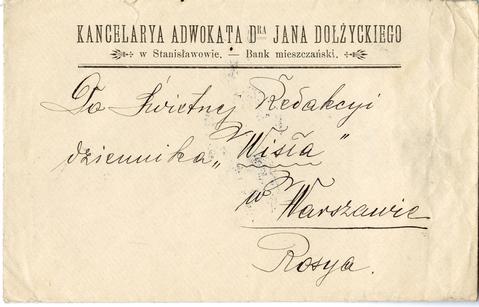 KANCELARYA ADWOKATA DRA JANA DOLŻYCKIEGO
w Stanisławowie. — Bank mieszczański.
Do Świetnej Redakcyi
dziennika „Wisła”
w Warszawie
Rosya.